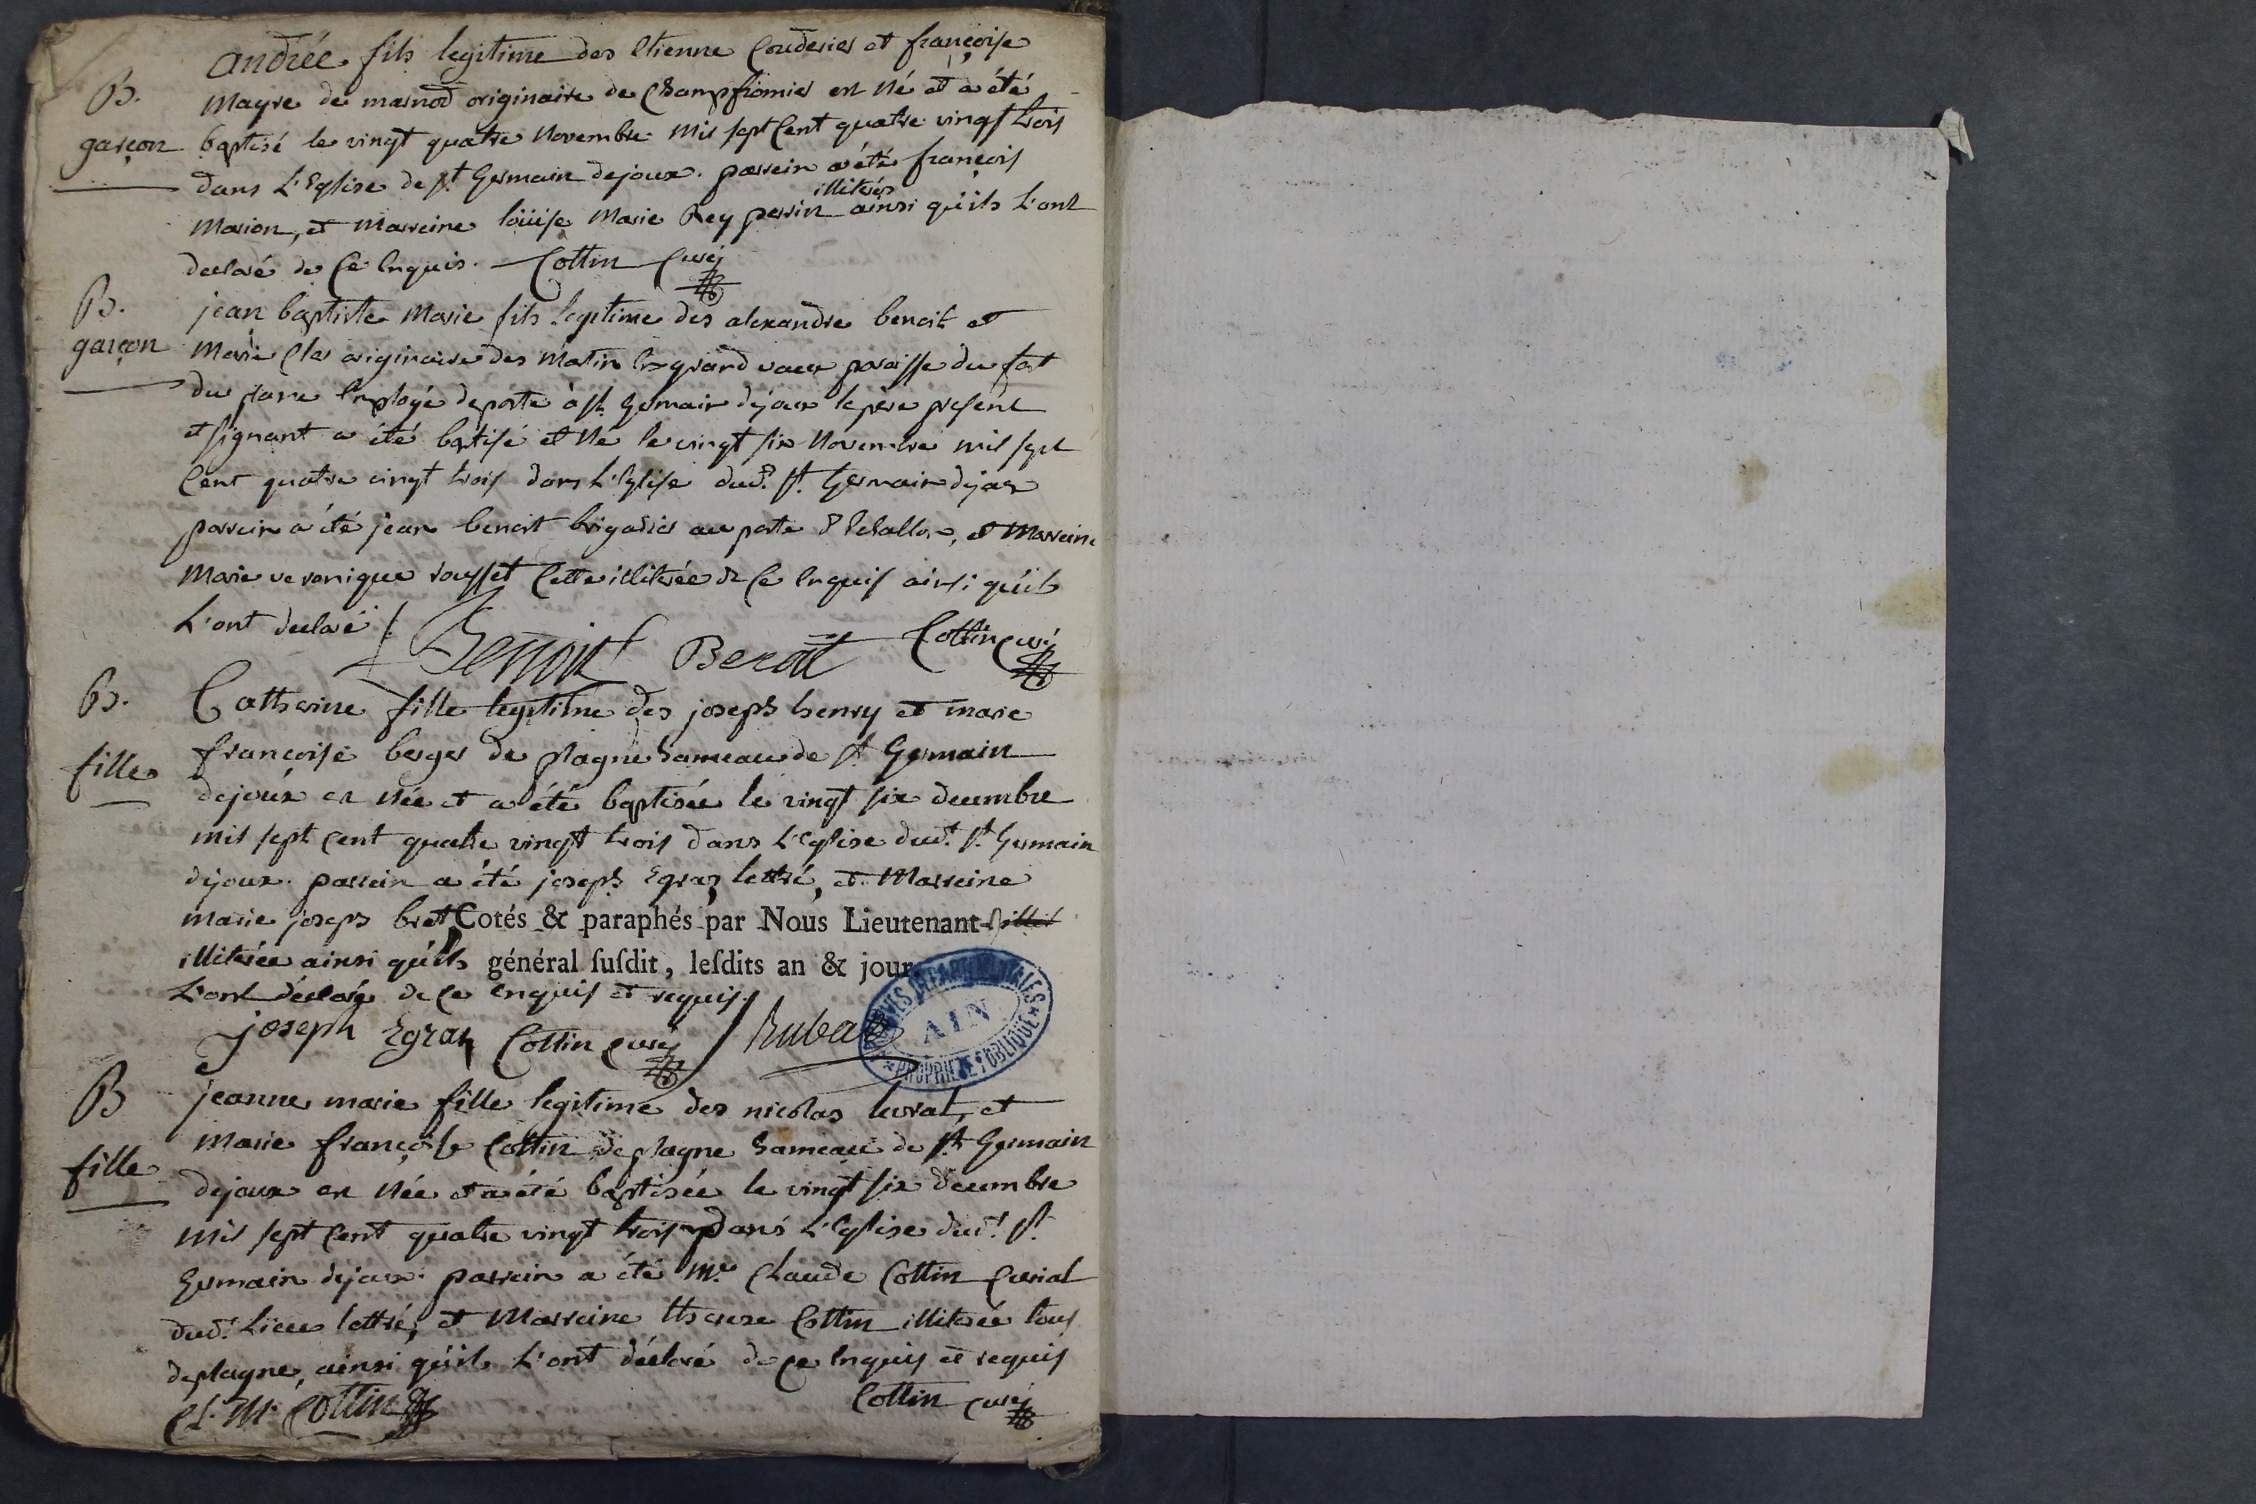 andrée fils legitime des Etienne Couderier et françoise
B.
garçon
Mayre de marnod originaire de Champfromier est né et a été
baptisé le vingt quatre Novembre mil sept Cent quatre vingt trois
dans L'Eglise de st Germain dejoux. parrein a été françois
illiterés
Marion, et Marreine loüise Marie Rey perrin ainsi qu'ils L'ont
declaré de Ce Enquis. Cottin Curé
B.
garçon
jean baptiste Marie fils legitime des alexandre benoit et
Marie originaire des grand vaux paroisse du fort
du plane Employé deposte à st. Germain dejoux le père present
et signant a été batisé et Né le vingt six Novembre mil sept
Cent quatre vingt trois dans L'Eglise dud.t st. Germain dejoux
parrein a été jean benoit brigadier au poste, et Marreine
Marie veronique rousset Cette illiterée de Ce Enquis ainsi qu'ils
L'ont declaré
Benoit Benoit Cottin Curé
B.
fille
Catherine fille legitime des joseph henry et marie
françoise berger de plagne hameau de st Germain
dejoux est Née et a été baptisée le vingt six decembre
mil sept Cent quatre vingt trois dans L'Eglise dud.t st Germain
dejoux. parrein a été joseph Egraz lettré, et Marreine
marie joseph bret Cotés & paraphés par Nous Lieutenant-
illiterée ainsi qu'ils général susdit, lesdits an & jour.
L'ont déclaré de Ce enquis et requis
joseph Egraz Cottin Curé
ARCHIVES DÉPARTEMENTALES
AIN
PROPRIÉTÉ PUBLIQUE
B
fille
jeanne marie fille legitime des nicolas levrat, et
Marie françoise Cottin de plagne hameau de st Germain
dejoux est Née et a été baptisée le vingt six decembre
mil sept Cent quatre vingt trois dans L'Eglise dud.t st.
Germain dejoux. parrein a été M.e Claude Cottin Curial
dud.t Lieu lettré, et Marreine Cottin illiterée tous
deplagne, ainsi qu'ils L'ont déclaré de Ce Enquis et requis
Cl. M. Cottin Cottin Curé